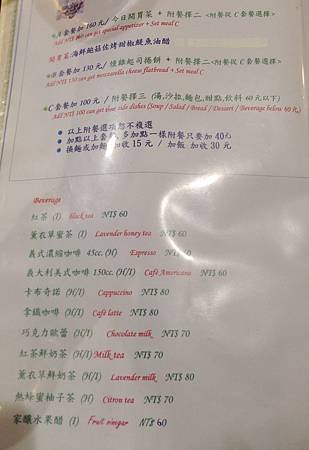 套餐加 160元/ 今日開胃菜 + 附餐擇二 <附餐從 C 套餐選擇>
Add NT$ 160 can get special appetizer + Set meal C
開胃菜:海鮮鮑菇佐烤甜椒鯷魚油醋
套餐加 130元/ 燻雞起司捲餅 + 附餐擇二 <附餐從 C 套餐選擇>
Add NT$ 130 can get mozzarella cheese flatbread + Set meal C
C 套餐加 100元 / 附餐擇三 (湯,沙拉,麵包,甜點,飲料 60元以下)
Add NT$ 100 can get three side dishes (Soup / Salad / Bread / Dessert / Beverage below 60元)
● 以上附餐選項恕不複選
● 加點以上套餐,多加點一樣附餐只要加 40元
● 換麵或加麵 加收 15元 / 加飯 加收 30元
Beverage
紅茶 (I) Black tea NT$ 60
薰衣草蜜茶 (I) Lavender honey tea NT$ 60
義式濃縮咖啡 45cc. (H) Espresso NT$ 60
義大利美式咖啡 150cc. (H/I) Café Americano NT$ 60
卡布奇諾 (H/I) Cappuccino NT$ 80
拿鐵咖啡 (H/I) Café latte NT$ 80
巧克力歐蕾 (H/I) Chocolate milk NT$ 70
紅茶鮮奶茶 (H/I) Milk tea NT$ 70
薰衣草鮮奶茶 (H/I) Lavender milk NT$ 80
熱蜂蜜柚子茶 (H) Citron tea NT$ 70
家釀水果醋 (I) Fruit vinegar NT$ 60